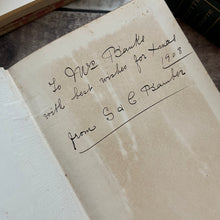 To Mrs Banks
with best wishes for Xmas
1903
from G & C Bamber